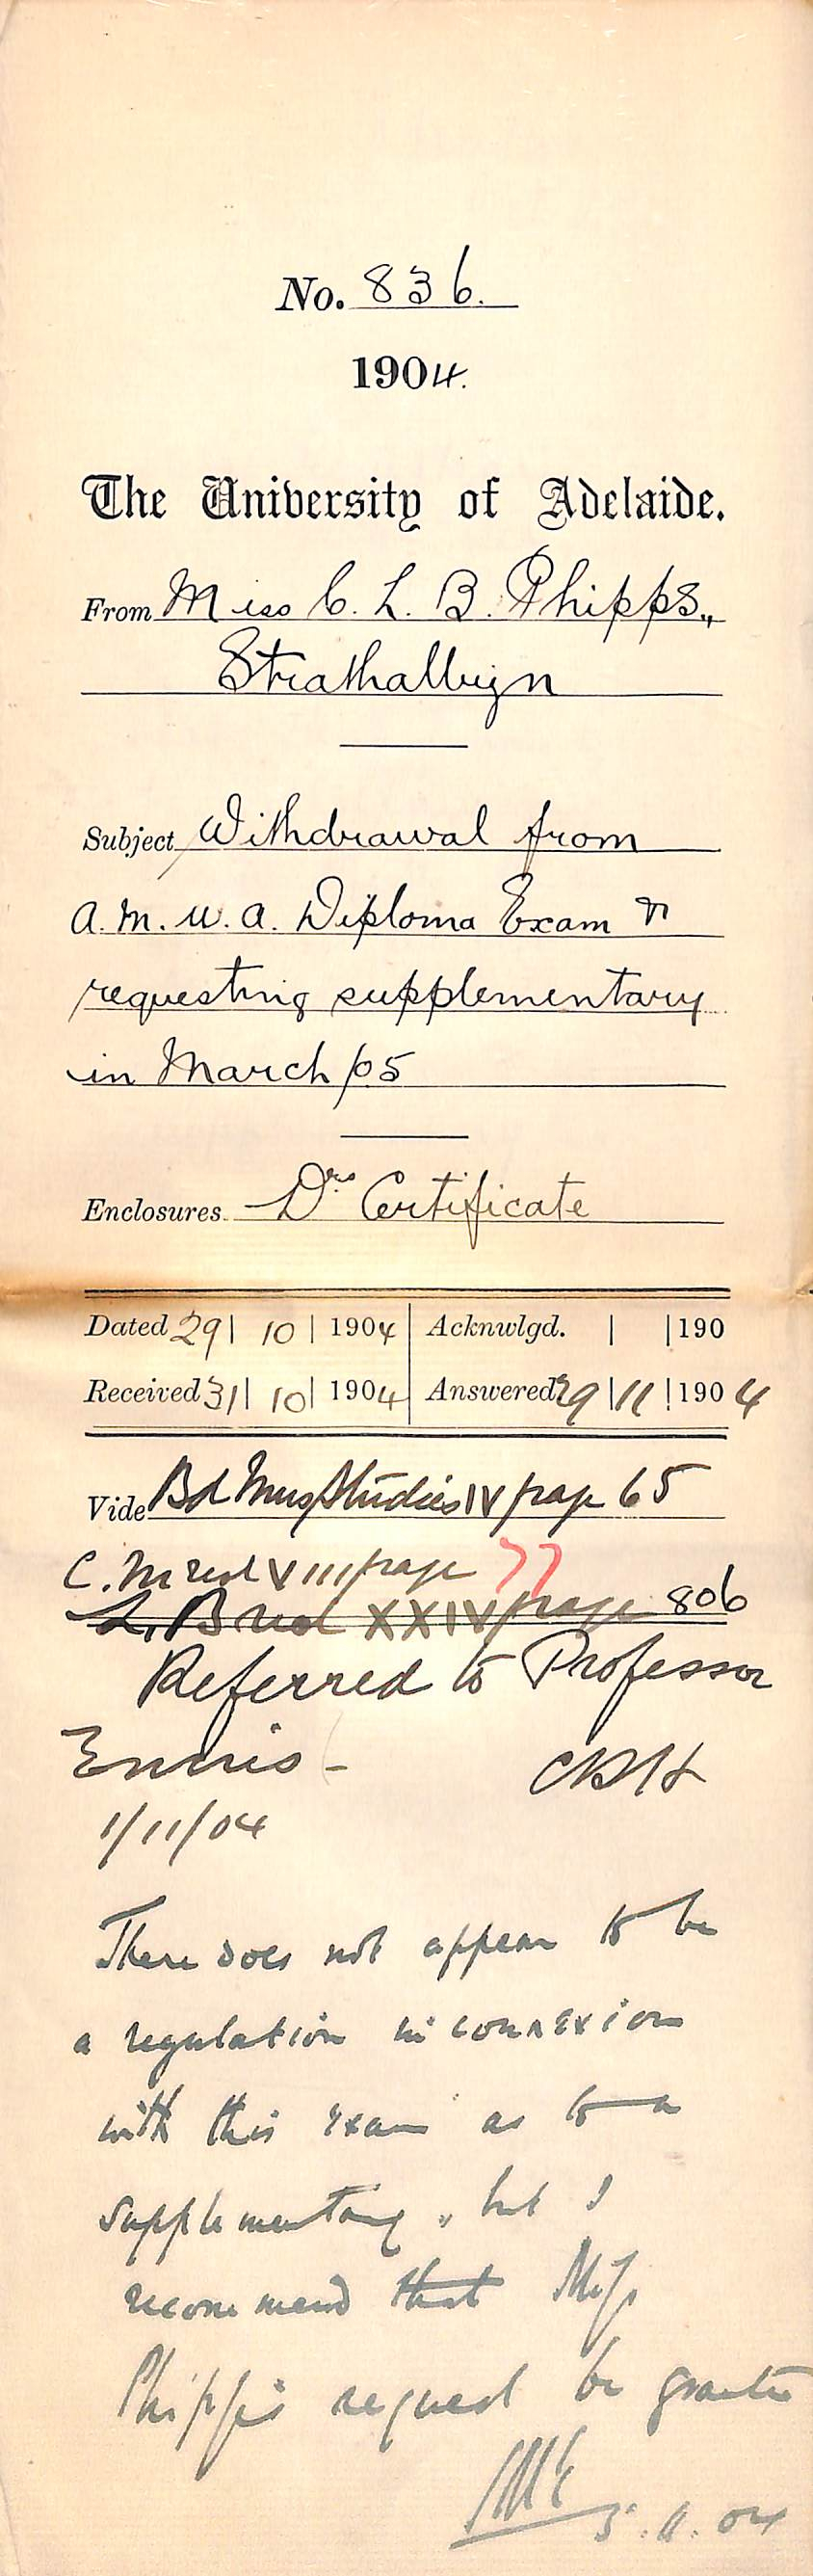 No. 836.
1904.
The University of Adelaide.
From Miss C. L. B. Phipps.,
Strathalbyn
Subject Withdrawal from
A. M. U. A. Diploma Exam &
requesting supplementary
in March /05
Enclosures Drs Certificate
Dated 29 | 10 | 1904 Acknwlgd. | | 190
Received 31 | 10 | 1904 Answered 29 | 11 | 1904
Vide Bd Mus Studies IV page 65
C. M red VIII page 77
L. B red XXIV page 806
Referred to Professor
Ennis - CRH
1/11/04
There does not appear to be
a regulation in connexion
with this exam as to a
supplementary, but I
recommend that Miss
Phipps's request be granted
5.11.04